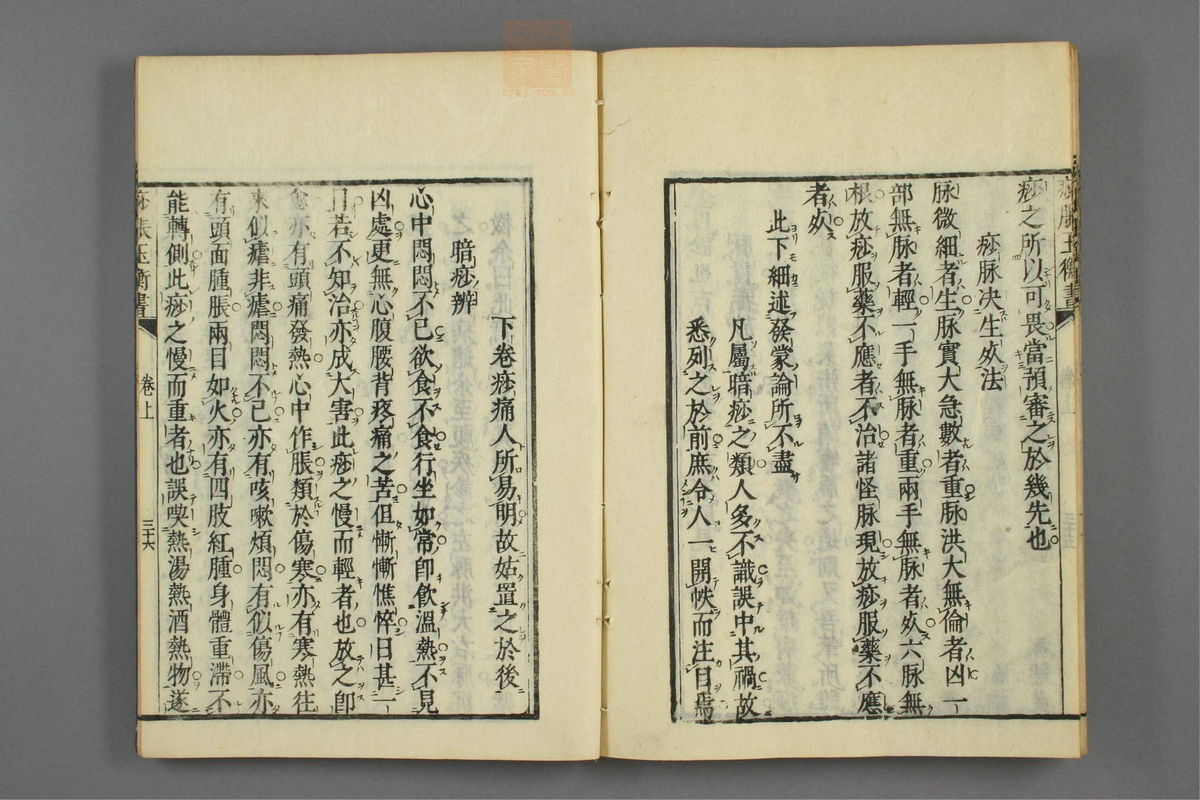 痧脹玉衡書
痧之所以可畏當預審之於幾先也
痧脉决生死法
脉微細者生脉實大急數者重脉洪大無倫者凶一
部無脉者輕一手無脉者重兩手無脉者死六脉無
根放痧服藥不應者不治諸怪脉現放痧服藥不應
者死
此下細述發蒙論所不盡
凡屬暗痧之類人多不識誤中其禍故
悉列之於前庶令人一開帙而注目焉
下卷痧痛人所易明故姑置之於後
暗痧辨
心中悶悶不已欲食不食行坐如常卽飮溫熱不見
凶處更無心腹腰背疼痛之苦但慚慚憔悴日甚一
日若不知治亦成大害此痧之慢而輕者也放之卽
愈亦有頭痛發熱心中作脹類於傷寒亦有寒熱往
來似瘧非瘧悶悶不已亦有咳嗽煩悶有似傷風亦
有頭面腫脹兩目如火亦有四肢紅腫身體重滯不
能轉側此痧之慢而重者也誤喫熱湯熱酒熱物遂
痧脹玉衡書
卷上
三十六